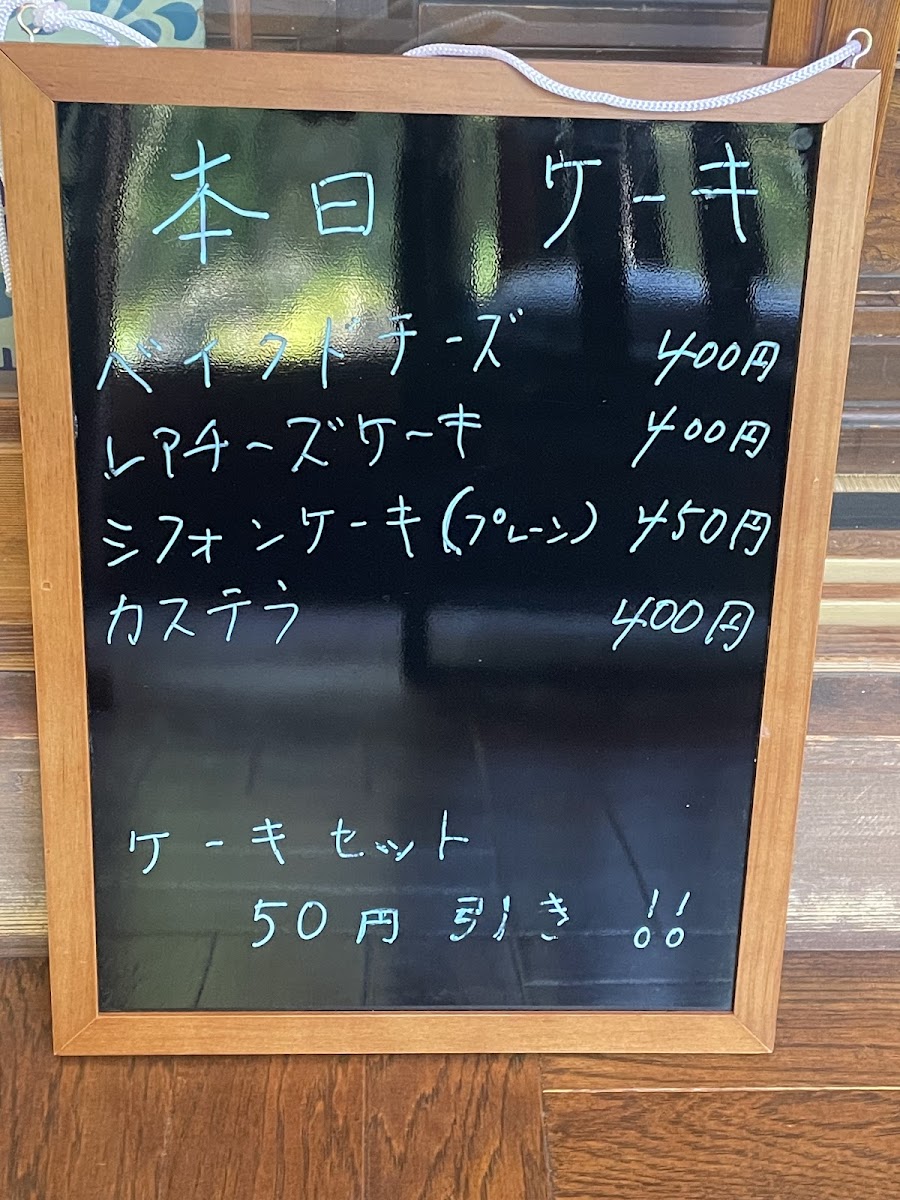 本日 ケーキ
ベイクドチーズ 400円
レアチーズケーキ 400円
シフォンケーキ(プレーン) 450円
カステラ 400円
ケーキセット
50円引き!!